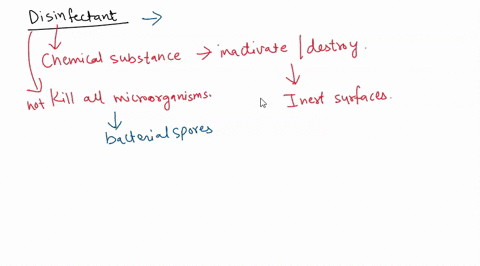 Disinfectant →
Chemical substance → inactivate | destroy.
not Kill all microorganisms.
Inert surfaces.
bacterial spores